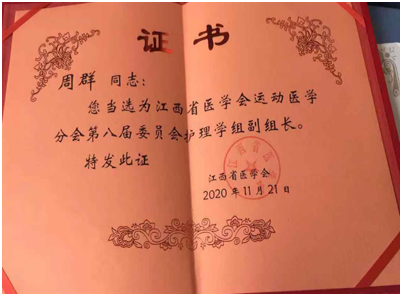 证书
周群 同志：
您当选为江西省医学会运动医学
分会第八届委员会护理学组副组长。
特发此证
江西省医学会
2020年11月21日